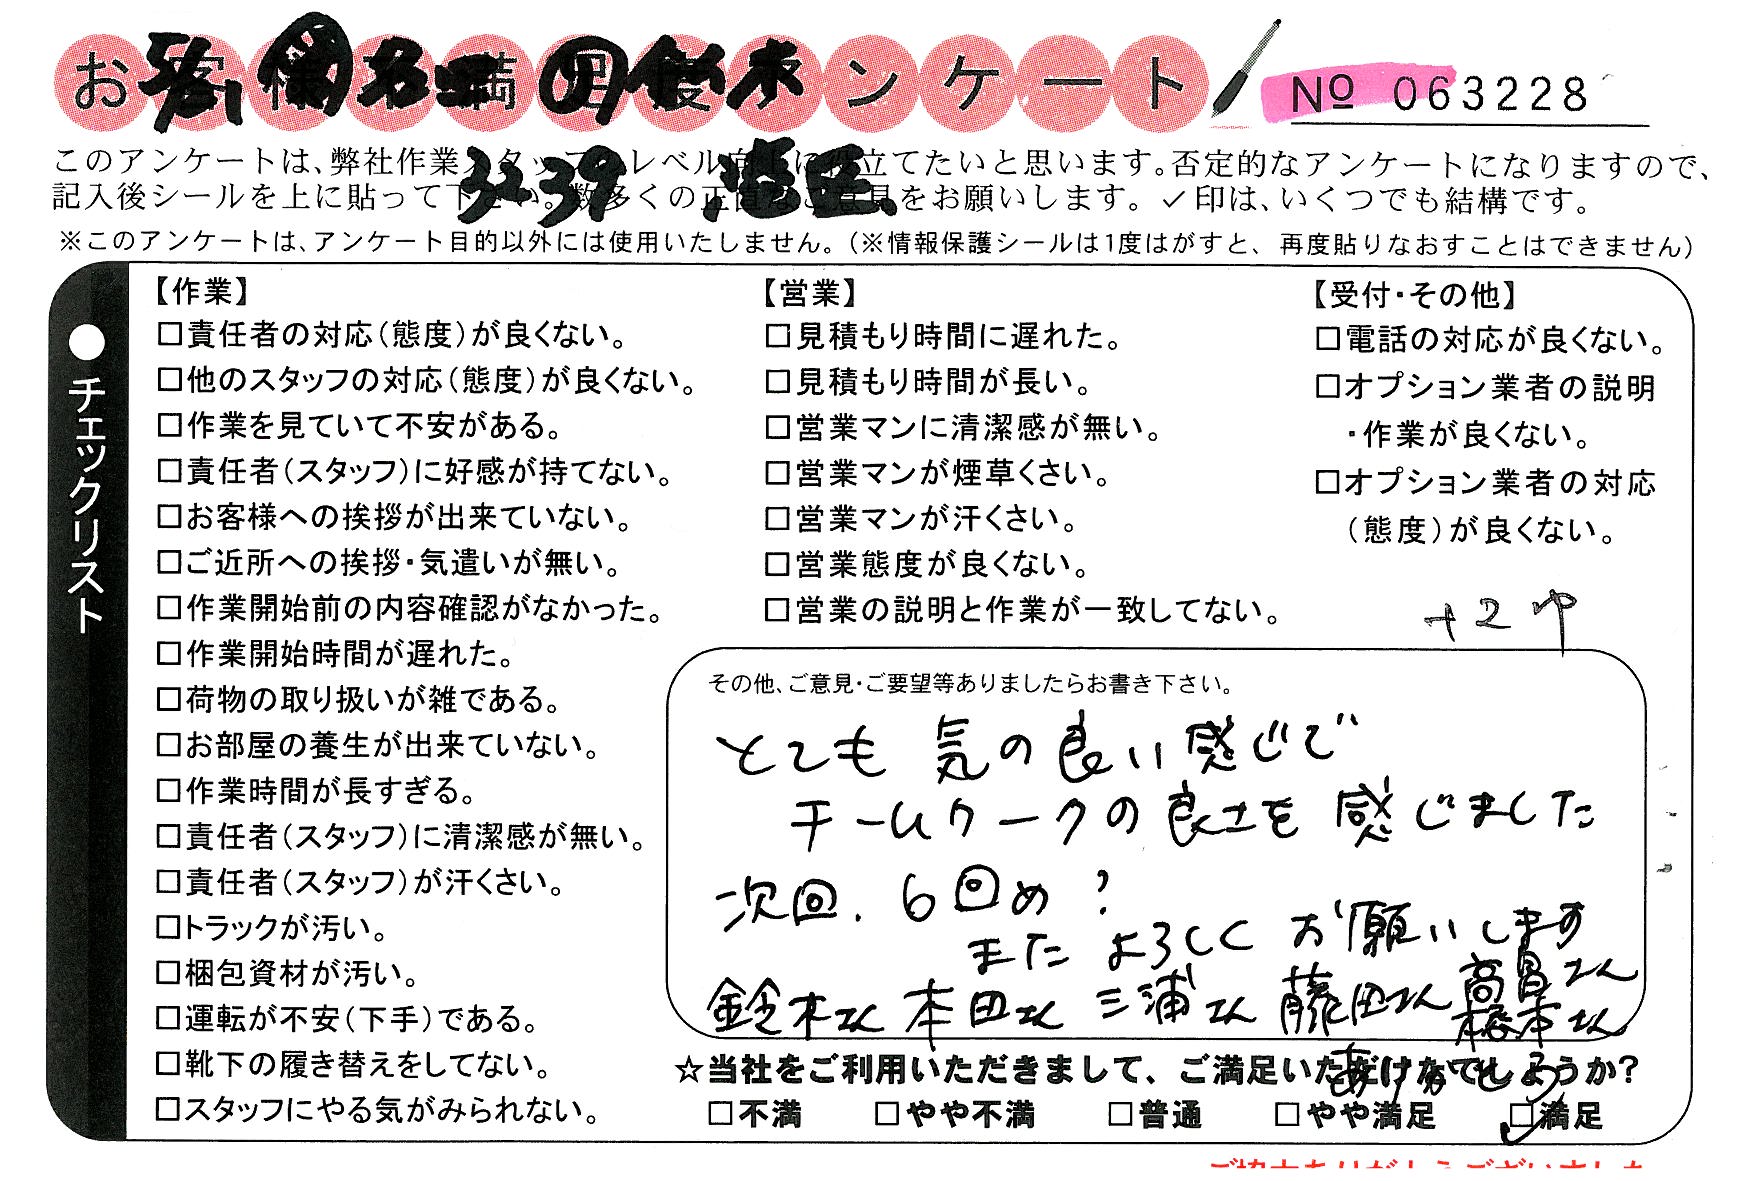 お客様不満足度アンケート
No 063228
3239
このアンケートは、弊社作業スタッフのレベル向上に役立てたいと思います。否定的なアンケートになりますので、
記入後シールを上に貼って下さい。数多くの正直なご意見をお願いします。✓印は、いくつでも結構です。
※このアンケートは、アンケート目的以外には使用いたしません。（※情報保護シールは1度はがすと、再度貼りなおすことはできません）
●チェックリスト
【作業】
□責任者の対応（態度）が良くない。
□他のスタッフの対応（態度）が良くない。
□作業を見ていて不安がある。
□責任者（スタッフ）に好感が持てない。
□お客様への挨拶が出来ていない。
□ご近所への挨拶・気遣いが無い。
□作業開始前の内容確認がなかった。
□作業開始時間が遅れた。
□荷物の取り扱いが雑である。
□お部屋の養生が出来ていない。
□作業時間が長すぎる。
□責任者（スタッフ）に清潔感が無い。
□責任者（スタッフ）が汗くさい。
□トラックが汚い。
□梱包資材が汚い。
□運転が不安（下手）である。
□靴下の履き替えをしてない。
□スタッフにやる気がみられない。
【営業】
□見積もり時間に遅れた。
□見積もり時間が長い。
□営業マンに清潔感が無い。
□営業マンが煙草くさい。
□営業マンが汗くさい。
□営業態度が良くない。
□営業の説明と作業が一致してない。
【受付・その他】
□電話の対応が良くない。
□オプション業者の説明
・作業が良くない。
□オプション業者の対応
（態度）が良くない。
その他、ご意見・ご要望等ありましたらお書き下さい。
とても 気の良い感じで
チームワークの良さを 感じました
次回、6回め？
また よろしく お願いします
鈴木さん 本田さん 三浦さん 藤田さん 高昌さん
橋本さん
☆当社をご利用いただきまして、ご満足いただけたでしょうか？
□不満 □やや不満 □普通 □やや満足 □満足
ご協力ありがとうございました